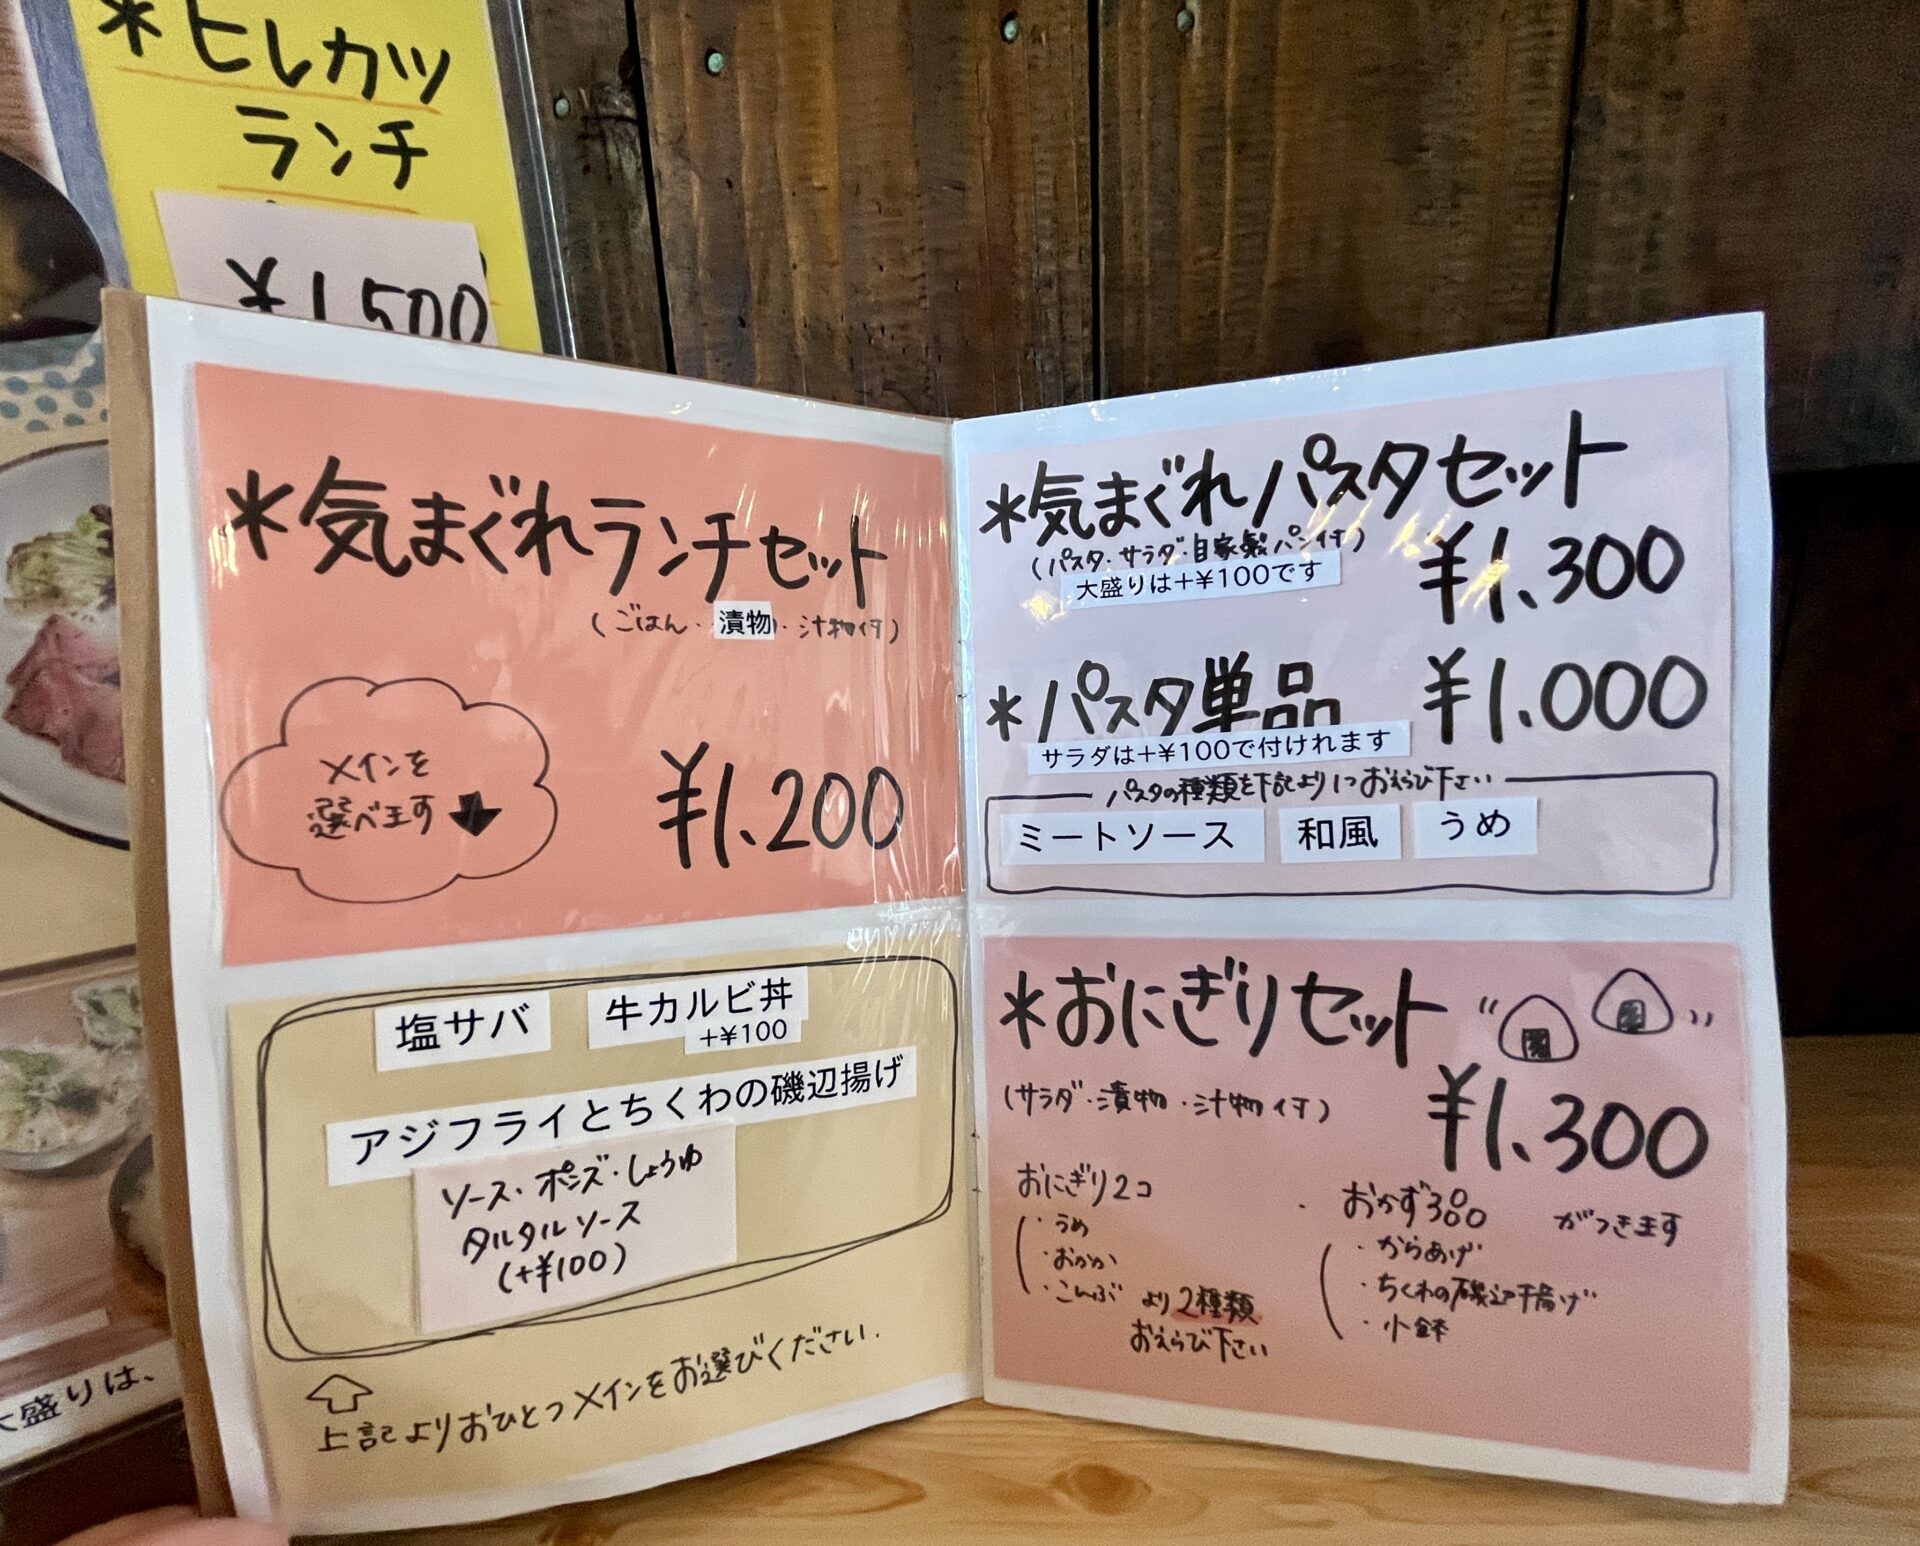 *ヒレカツ
ランチ
¥1,500
*気まぐれランチセット
(ごはん・漬物・汁物付)
メインを
選べます
¥1,200
塩サバ
牛カルビ丼
+¥100
アジフライとちくわの磯辺揚げ
ソース・ポンズ・しょうゆ
タルタルソース
(+¥100)
上記よりおひとつメインをお選びください.
*気まぐれパスタセット
(パスタ・サラダ・自家製パン付)
¥1,300
大盛りは+¥100です
*パスタ単品 ¥1,000
サラダは+¥100で付けれます
パスタの種類を下記より1つおえらび下さい
ミートソース 和風 うめ
*おにぎりセット
(サラダ・漬物・汁物付)
¥1,300
おにぎり2コ
・うめ
・おかか
・こんぶ より2種類
おえらび下さい
・おかず3 がつきます
・からあげ
・ちくわの磯辺揚げ
・小鉢
大盛りは、